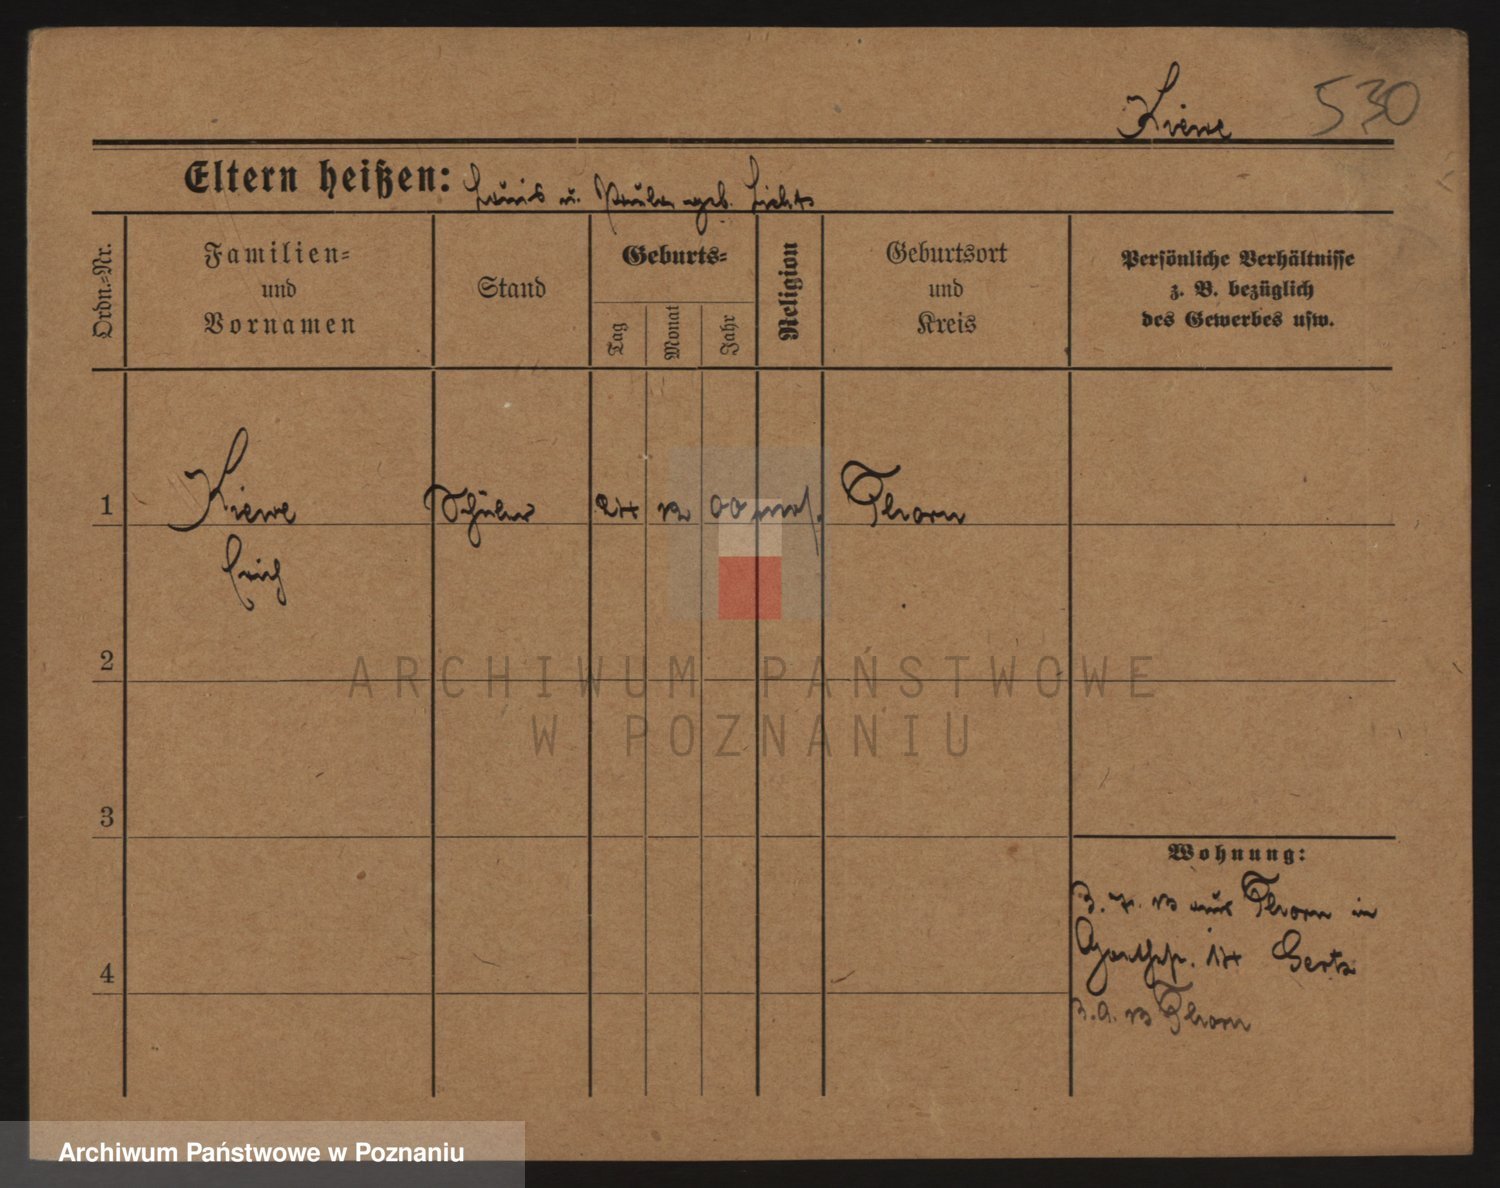 Kiewe 530
Eltern heißen: Louis u. Paula geb. Lichts
Ordn.=Nr.
Familien=
und
Vornamen
Stand
Geburts=
Tag
Monat
Jahr
Religion
Geburtsort
und
Kreis
Persönliche Verhältnisse
z. B. bezüglich
des Gewerbes usw.
1 Kiewe Schüler 24 12 00 mos. Thorn
Erich
2
ARCHIWUM PAŃSTWOWE
W POZNANIU
3
Wohnung:
3. 7. 13 aus Thorn in
14
4
13 Thorn
Archiwum Państwowe w Poznaniu